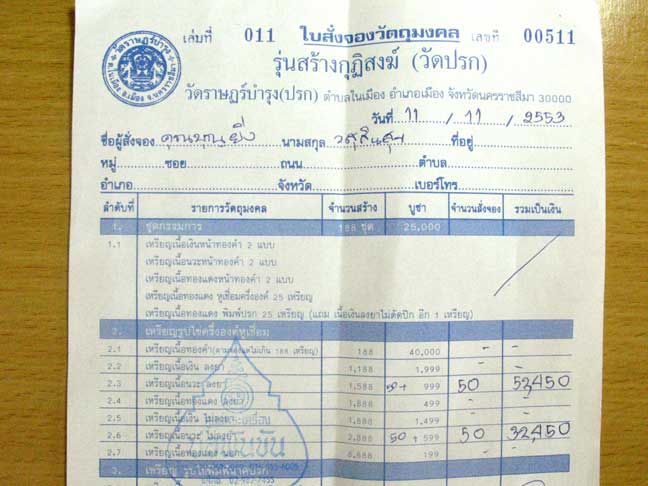 เล่มที่ 011 ใบสั่งจองวัตถุมงคล เลขที่ 00511
รุ่นสร้างกุฏิสงฆ์ (วัดปรก)
วัดราษฎร์บำรุง(ปรก) ตำบลในเมือง อำเภอเมือง จังหวัดนครราชสีมา 30000
วันที่ 11 / 11 / 2553
ชื่อผู้สั่งจอง นามสกุล ที่อยู่
หมู่ ซอย ถนน ตำบล
อำเภอ จังหวัด เบอร์โทร
ลำดับที่ รายการวัตถุมงคล จำนวนสร้าง บูชา จำนวนสั่งจอง รวมเป็นเงิน
1. ชุดกรรมการ 188 ชุด 25,000
1.1 เหรียญเนื้อเงินหน้าทองคำ 2 แบบ
เหรียญเนื้อนวะหน้าทองคำ 2 แบบ
เหรียญเนื้อทองแดงหน้าทองคำ 2 แบบ
เหรียญเนื้อทองแดง หูเชื่อมครึ่งองค์ 25 เหรียญ
เหรียญเนื้อทองแดง พิมพ์ปรก 25 เหรียญ (แถม เนื้อเงินลงยาไม่ตัดปีก อีก 1 เหรียญ)
2. เหรียญรูปไข่ครึ่งองค์หูเชื่อม
2.1 เหรียญเนื้อทองคำ(ตามสั่งแต่ไม่เกิน 188 เหรียญ) 188 40,000 - -
2.2 เหรียญเนื้อเงิน ลงยา 1,188 1,999 - -
2.3 เหรียญเนื้อนวะ ลงยา 1,588 999 50 53,450
2.4 เหรียญเนื้อทองแดง ลงยา 499 - -
2.5 เหรียญเนื้อเงิน ไม่ลงยา 1,499 - -
2.6 เหรียญเนื้อนวะ ไม่ลงยา 2,888 50 + 599 50 32,450
2.7 เหรียญเนื้อทองแดง 199 - -
3. เหรียญ รูปไข่พิมพ์นาคปรก